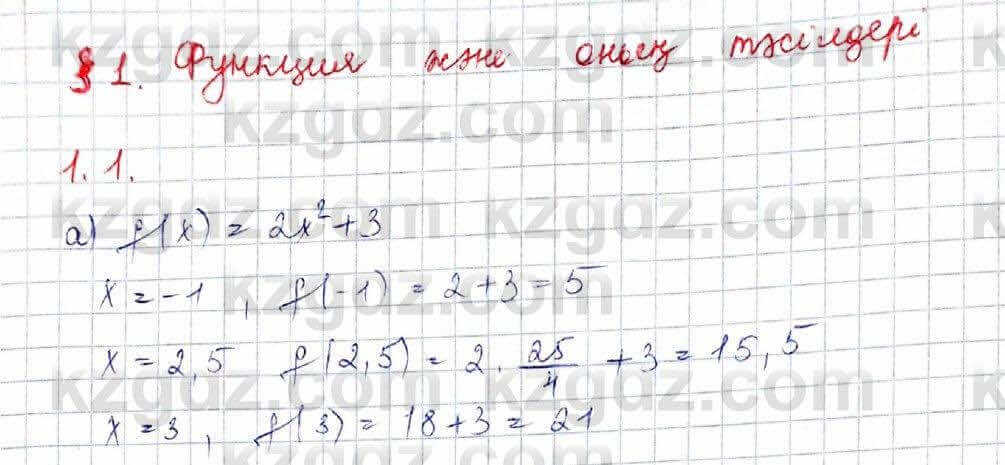 § 1. Функция және оның тәсілдері
1.1.
а) f(x) = 2x² + 3
x = -1, f(-1) = 2 + 3 = 5
x = 2,5 f(2,5) = 2 · 25/4 + 3 = 15,5
x = 3, f(3) = 18 + 3 = 21
kzgdz.com